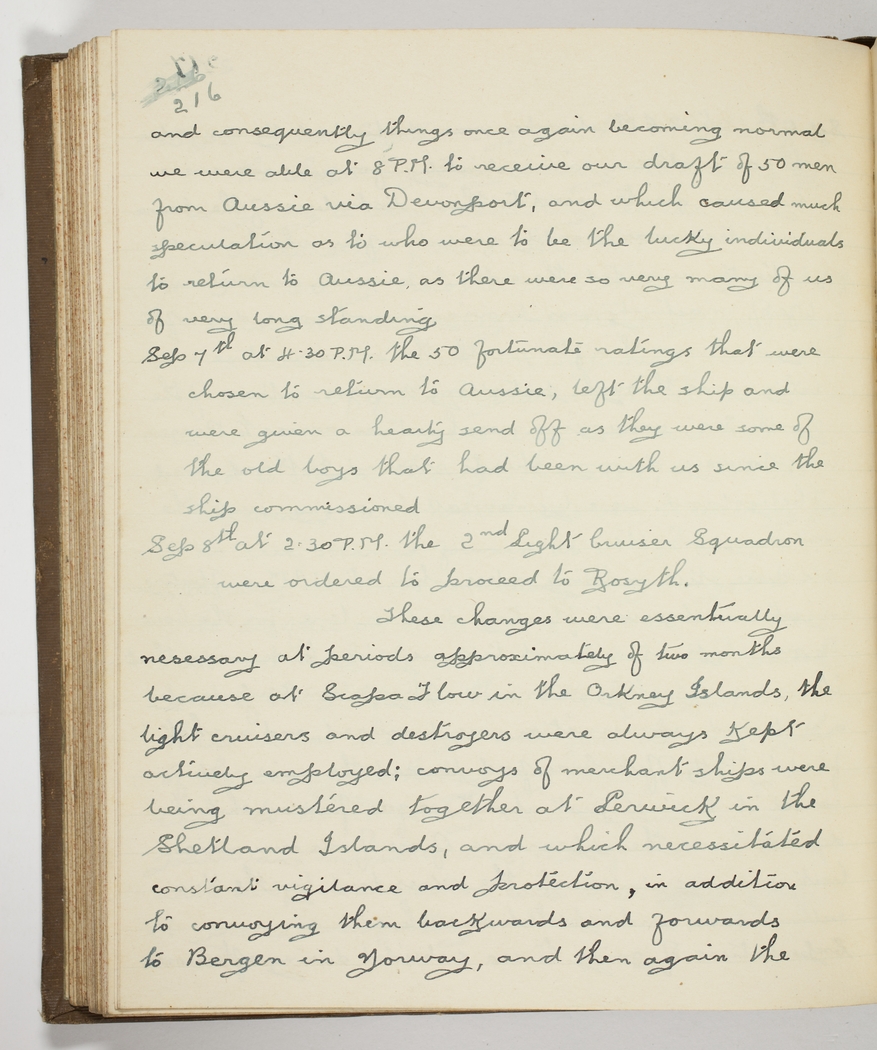 216
and consequently things once again becoming normal
we were able at 8 P.M. to receive our draft of 50 men
from Aussie via Devonport, and which caused much
speculation as to who were to be the lucky individuals
to return to Aussie, as there were so very many of us
of very long standing
Sep 7th at 4.30 P.M. the 50 fortunate ratings that were
chosen to return to Aussie, left the ship and
were given a hearty send off as they were some of
the old boys that had been with us since the
ship commissioned
Sep 8th at 2.30 P.M. the 2nd Light Cruiser Squadron
were ordered to proceed to Rosyth.
These changes were essentually
nesessary at periods approximately of two months
because at Scapa Flow in the Orkney Islands, the
light cruisers and destroyers were always kept
actively employed; convoys of merchant ships were
being mustered together at Lerwick in the
Shetland Islands, and which necessitated
constant vigilance and protection, in addition
to convoying them backwards and forwards
to Bergen in Norway, and then again the